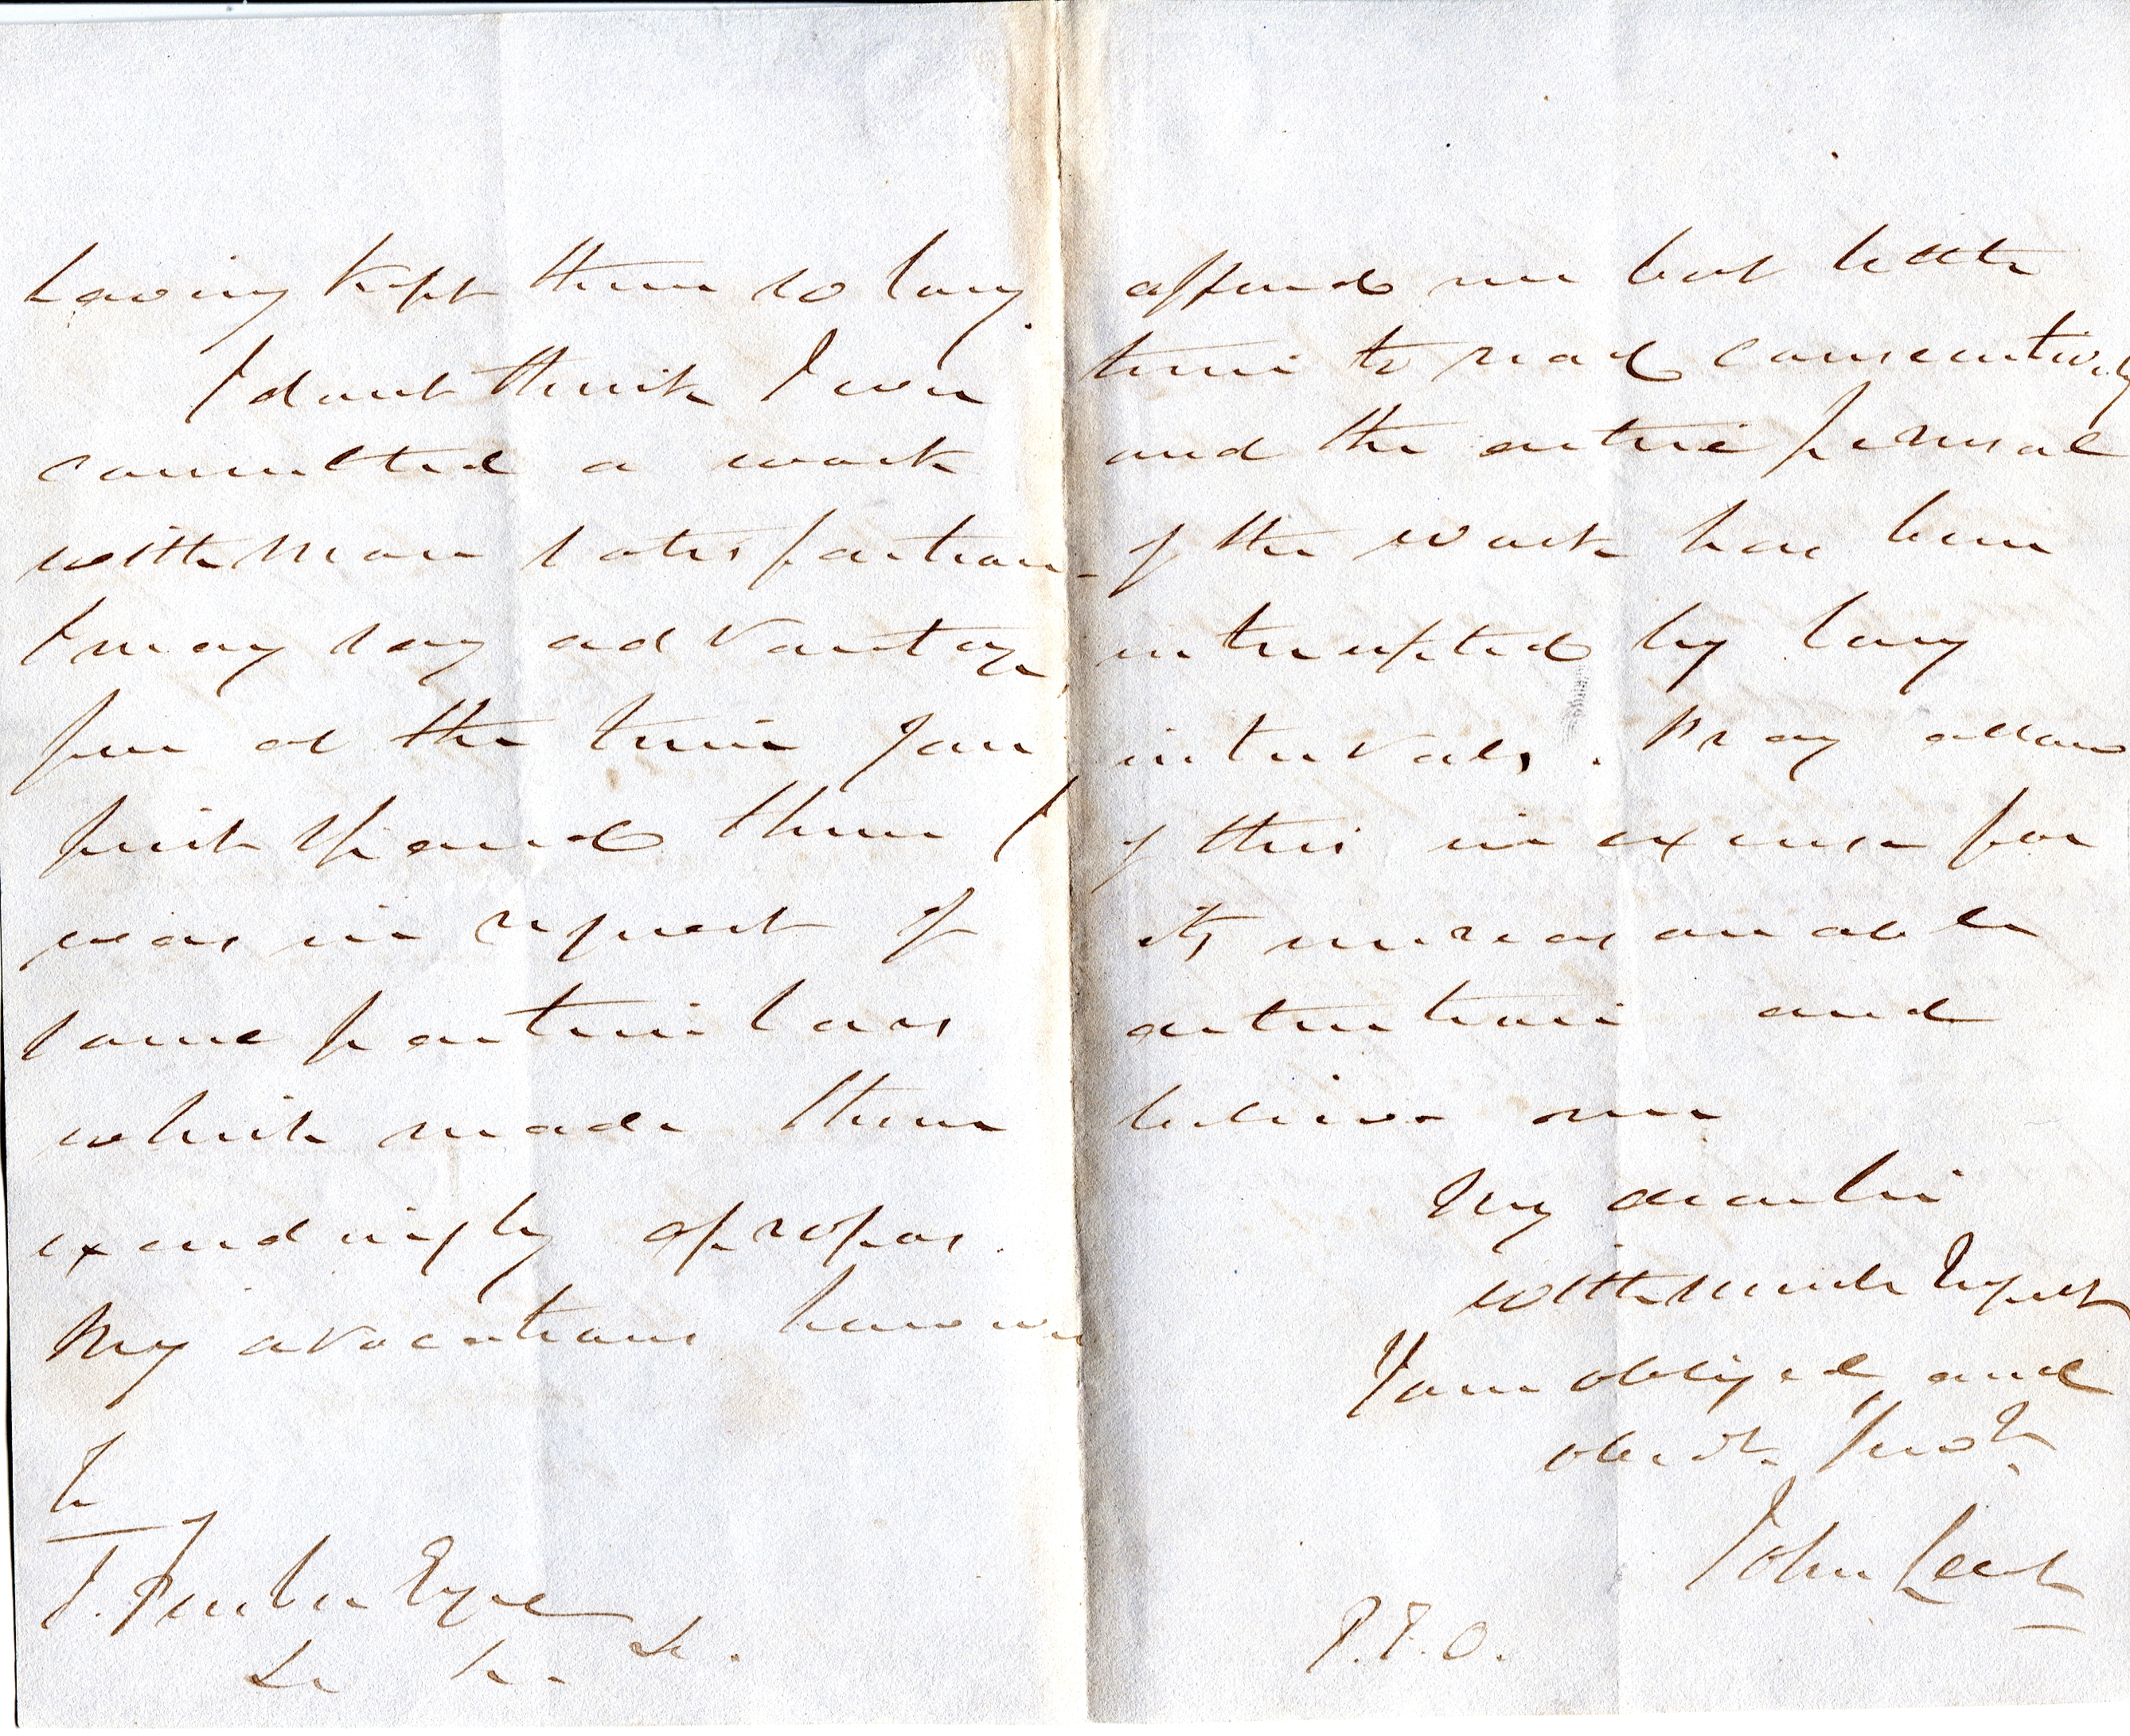 having kept them so long.
I dont think I ever
consulted a work
with more satisfaction -
I may say advantage,
for at the time you
first them I
was in request of
some particulars
which made them
exceedingly apropos.
My avocations however
To
J. Esqre
&c &c &c.
afford me but little
time to read consecutively
and the entire perusal
of the work has been
interrupted by long
intervals. Pray allow
of this in excuse for
its unreasonable
detention and
believe me
My dear Sir
with much respect
Your obliged and
obedt. Servt.
John Leech
P.T.O.